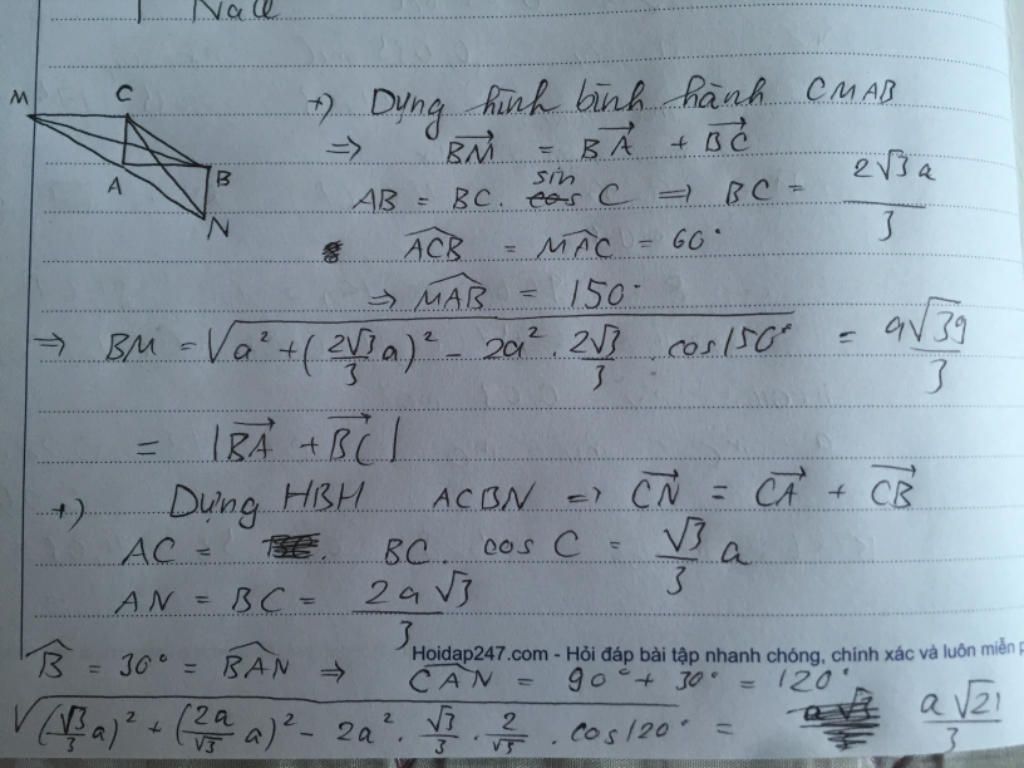 Nall
M C
A B
N
+) Dựng hình bình hành CMAB
=> BM = BA + BC
AB = BC. sin cos C => BC = 2√3 a / 3
ACB = MAC = 60°
=> MAB = 150°
=> BM = √(a² + (2√3/3 a)² - 2a² . 2√3/3 . cos150°) = a√39/3
= |BA + BC|
+) Dựng HBH ACBN => CN = CA + CB
AC = . BC. cos C = √3/3 a
AN = BC = 2a√3/3
B = 30° = BAN => CAN = 90° + 30° = 120°
Hoidap247.com - Hỏi đáp bài tập nhanh chóng, chính xác và luôn miễn p
√((√3/3 a)² + (2a/√3 a)² - 2a² . √3/3 . 2/√3 . cos120°) = a√3 a√21/3